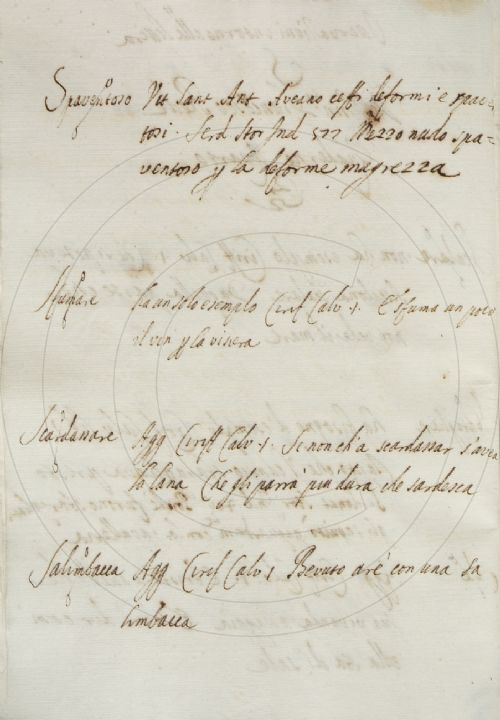 Spaventoso Vit Sant Ant Aveano ceffi deformi e spaven=
tosi. Serd Stor Ind 577 Mezzo nudo spa=
ventoso p la deforme magrezza
Sfumare ha un solo esemplo Ciriff Calv 1. E sfuma un poco
il vin p la visiera
Scardassare Agg Ciriff Calv 1. Se non ch'a scardassar s'avea
la lana Che gli parrà piu dura che sardesca
Salimbacca Agg Cirif Calv 1 Bevuto are' con una sa
limbacca